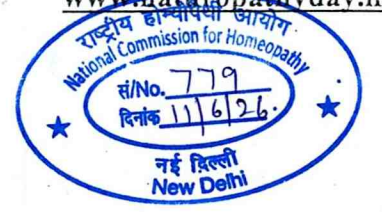 राष्ट्रीय होम्योपैथी आयोग
National Commission for Homeopathy
सं/No. 779
दिनांक 11/6/26.
नई दिल्ली
New Delhi